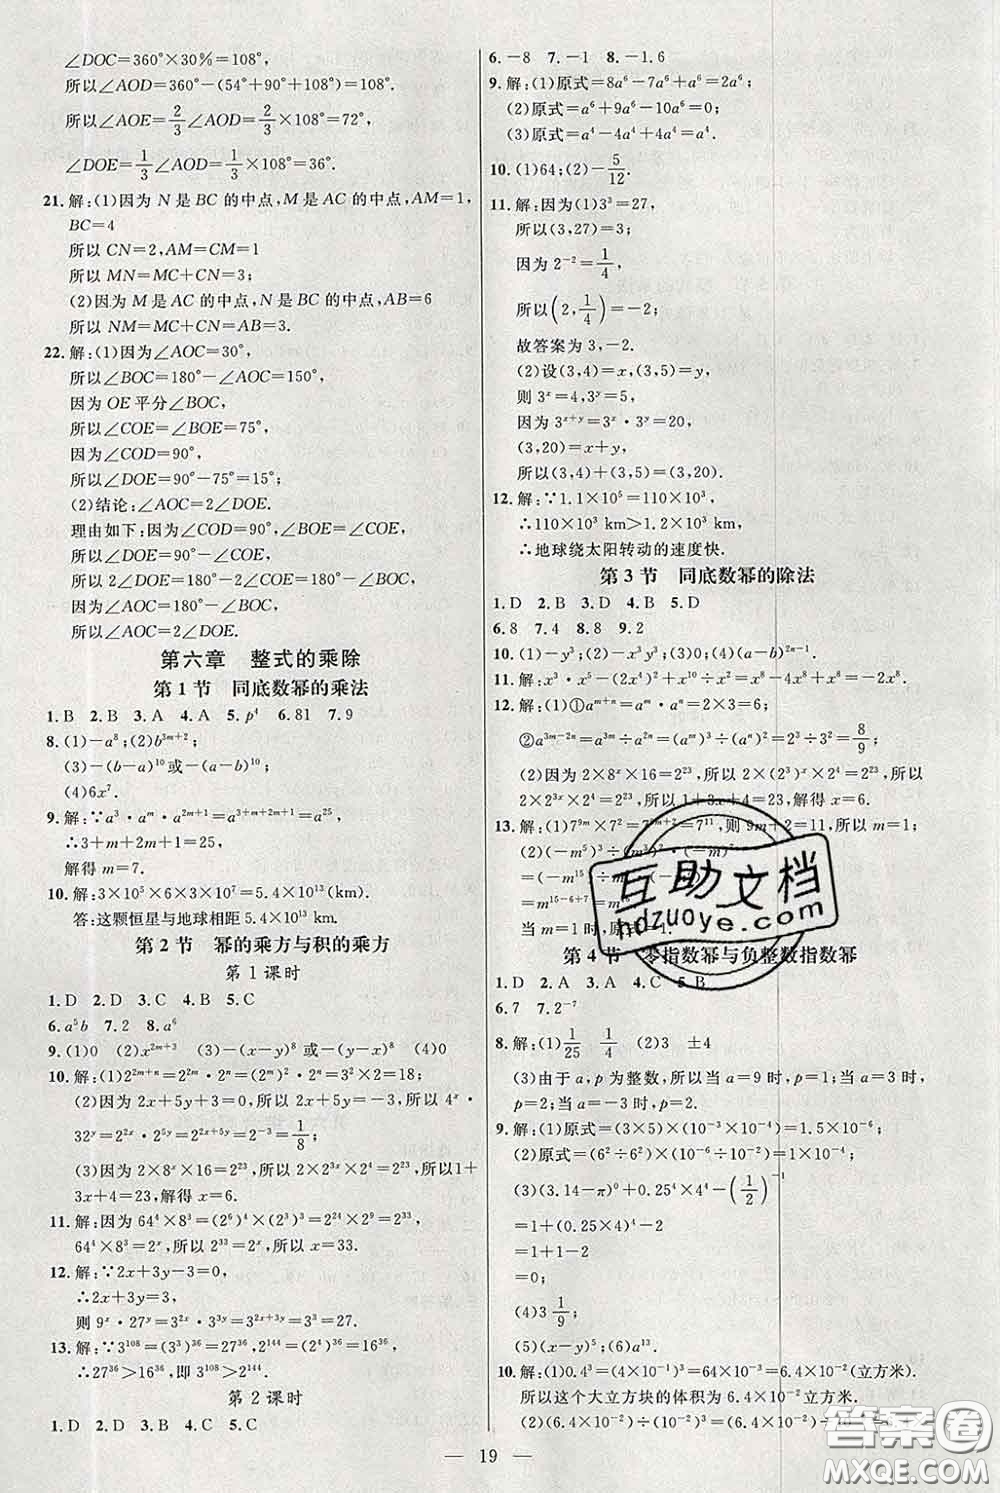 ∠DOC=360°×30%=108°,
所以∠AOD=360°-(54°+90°+108°)=108°.
所以∠AOE=2/3∠AOD=2/3×108°=72°,
∠DOE=1/3∠AOD=1/3×108°=36°.
21.解:(1)因为 N 是 BC 的中点,M 是 AC 的中点,AM=1,
BC=4
所以 CN=2,AM=CM=1
所以 MN=MC+CN=3;
(2)因为 M 是 AC 的中点,N 是 BC 的中点,AB=6
所以 NM=MC+CN=AB=3.
22.解:(1)因为∠AOC=30°,
所以∠BOC=180°-∠AOC=150°,
因为 OE 平分∠BOC,
所以∠COE=∠BOE=75°,
因为∠COD=90°,
所以∠DOE=90°-75°=15°;
(2)结论:∠AOC=2∠DOE.
理由如下:因为∠COD=90°,∠BOE=∠COE,
所以∠DOE=90°-∠COE,
所以 2∠DOE=180°-2∠COE=180°-∠BOC,
因为∠AOC=180°-∠BOC,
所以∠AOC=2∠DOE.
第六章 整式的乘除
第 1 节 同底数幂的乘法
1.B 2.B 3.A 4.A 5.p⁴ 6.81 7.9
8.(1)-a⁸;(2)b³ᵐ⁺²;
(3)-(b-a)¹⁰或-(a-b)¹⁰;
(4)6x⁷.
9.解:∵a³·aᵐ·a²ᵐ⁺¹=a³⁺ᵐ⁺²ᵐ⁺¹=a²⁵,
∴3+m+2m+1=25,
解得 m=7.
10.解:3×10⁵×6×3×10⁷=5.4×10¹³(km).
答:这颗恒星与地球相距 5.4×10¹³ km.
第 2 节 幂的乘方与积的乘方
第 1 课时
1.D 2.D 3.C 4.B 5.C
6.a⁵b 7.2 8.a⁶
9.(1)0 (2)x²ᵐ⁺³ (3)-(x-y)⁸ 或-(y-x)⁸ (4)0
10.解:(1)2²ᵐ⁺ⁿ=2²ᵐ·2ⁿ=(2ᵐ)²·2ⁿ=3²×2=18;
(2)因为 2x+5y+3=0,所以 2x+5y=-3,所以 4ˣ·
32ʸ=2²ˣ·2⁵ʸ=2²ˣ⁺⁵ʸ=2⁻³=1/8;
(3)因为 2×8ˣ×16=2²³,所以 2×2³ˣ×2⁴=2²³,所以1+
3x+4=23,解得 x=6.
11.解:因为 64⁴×8³=(2⁶)⁴×(2³)³=2²⁴×2⁹=2³³,
64⁴×8³=2ˣ,所以 2ˣ=2³³,所以 x=33.
12.解:∵2x+3y-3=0,
∴2x+3y=3,
则 9ˣ·27ʸ=3²ˣ·3³ʸ=3²ˣ⁺³ʸ=3³=27.
13.解:∵3¹⁰⁸=(3³)³⁶=27³⁶,2¹⁴⁴=(2⁴)³⁶=16³⁶,
∴27³⁶>16³⁶,即 3¹⁰⁸>2¹⁴⁴.
第 2 课时
1.D 2.D 3.B 4.C 5.C
6.-8 7.-1 8.-1.6
9.解:(1)原式=8a⁶-7a⁶+a⁶=2a⁶;
(2)原式=a⁶+9a⁶-10a⁶=0;
(3)原式=a⁴-4a⁴+4a⁴=a⁴.
10.(1)64;(2)-5/12.
11.解:因为(1)3³=27,
所以(3,27)=3;
因为 2⁻²=1/4,
所以(2,1/4)=-2;
故答案为 3,-2.
(2)设(3,4)=x,(3,5)=y,
则 3ˣ=4,3ʸ=5,
因为 3ˣ⁺ʸ=3ˣ·3ʸ=20,
(3,20)=x+y,
所以(3,4)+(3,5)=(3,20).
12.解:∵1.1×10⁵=110×10³,
∴110×10³ km>1.2×10³ km,
∴地球绕太阳转动的速度快.
第 3 节 同底数幂的除法
1.D 2.B 3.D 4.B 5.D
6.8 7.4 8.8 9.2
10.(1)-y³;(2)-x³y³;(3)0;(4)(a-b)²ⁿ⁻¹
11.解:x³·x⁵-(2x⁴)²+x¹⁰÷x²=x⁸-4x⁸+x⁸=-2x⁸.
12.解:(1)①aᵐ⁺ⁿ=aᵐ·aⁿ=2×3=6;
②a³ᵐ⁻²ⁿ=a³ᵐ÷a²ⁿ=(aᵐ)³÷(aⁿ)²=2³÷3²=8/9;
(2)因为 2×8ˣ×16=2²³,所以 2×(2³)ˣ×2⁴=2²³,所以
2×2³ˣ×2⁴=2²³,所以1+3x+4=23,解得 x=6.
13.解:(1)7⁹ᵐ×7²=7⁹ᵐ⁺²=7¹¹,则 9m+2=11,所以 m=1;
(2)(-m⁵)³÷(m³)²·(-m)⁷
=(-m¹⁵)÷m⁶·(-m⁷)
=m¹⁵⁻⁶⁺⁷=m¹⁶
当 m=1 时,原式=1.
第 4 节 零指数幂与负整数指数幂
1.D 2.A 3.A 4.C 5.B
6.7 7.2⁻⁷
8.解:(1)1/25 1/4 (2)3 ±4
(3)由于 a,p 为整数,所以当 a=9 时,p=1;当 a=3 时,
p=2;当 a=-3 时,p=2.
9.解:(1)原式=(3×5)×(10⁻³×10⁻⁴)=1.5×10⁻⁶;
(2)原式=(6²÷6²)×(10⁻⁶÷10⁻⁶)=1;
(3)(3.14-π)⁰+0.25⁴×4⁴-(1/2)⁻¹
=1+(0.25×4)⁴-2
=1+1-2
=0;
(4)3 1/9;
(5)(x-y)⁵;(6)1
10.解:(1)0.4³=(4×10⁻¹)³=64×10⁻³=6.4×10⁻²(立方米).
所以这个大立方块的体积为 6.4×10⁻²立方米.
(2)(6.4×10⁻²)÷(
19
互助文档
hdzuoye.com
答案圈
MXQE.COM